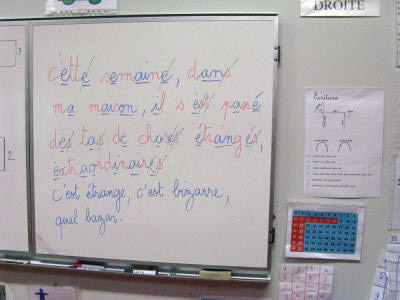 DROITE
3
cette semaine, dans
ma maison, il s'est passé
des tas de choses étranges,
extraordinaires
c'est étrange, c'est bizarre,
quel bazar.
2
Ecriture